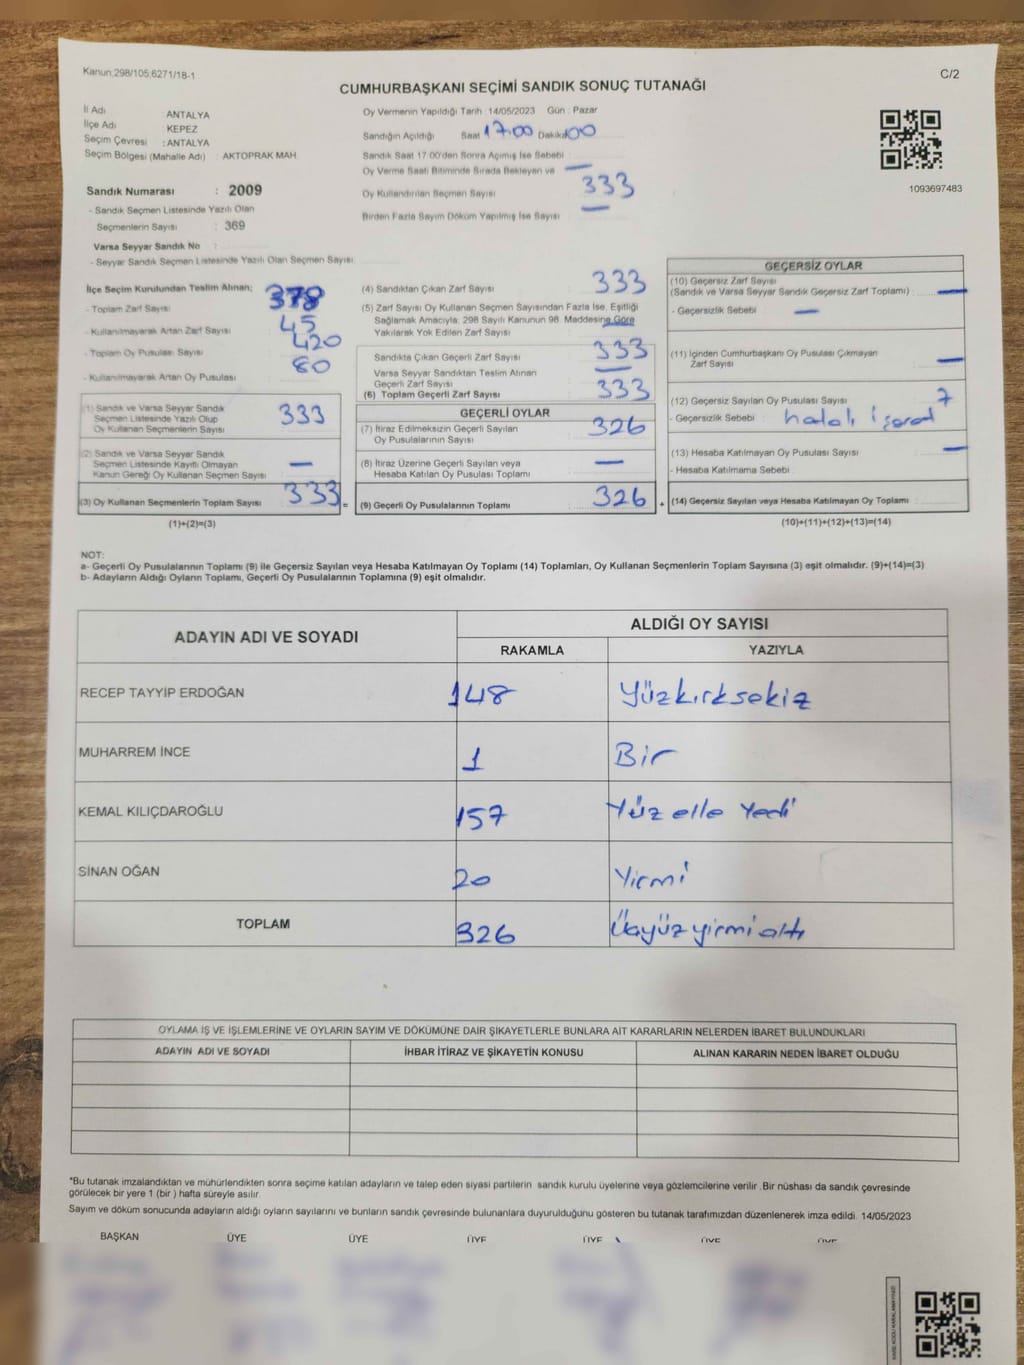 Kanun:298/105;6271/18-1
C/2
CUMHURBAŞKANI SEÇİMİ SANDIK SONUÇ TUTANAĞI
İl Adı ANTALYA
İlçe Adı : KEPEZ
Seçim Çevresi : ANTALYA
Seçim Bölgesi (Mahalle Adı) : AKTOPRAK MAH
Sandık Numarası : 2009
- Sandık Seçmen Listesinde Yazılı Olan
Seçmenlerin Sayısı : 369
Varsa Seyyar Sandık No :
- Seyyar Sandık Seçmen Listesinde Yazılı Olan Seçmen Sayısı
Oy Vermenin Yapıldığı Tarih :14/05/2023 Gün : Pazar
Sandığın Açıldığı Saat 17:00 Dakika 00
Sandık Saat 17:00'den Sonra Açımış İse Sebebi :
Oy Verme Saati Bitiminde Sırada Bekleyen ve —
Oy Kullandırılan Seçmen Sayısı 333
Birden Fazla Sayım Döküm Yapılmış İse Sayısı —
1093697483
İlçe Seçim Kurulundan Teslim Alınan;
- Toplam Zarf Sayısı 378
- Kullanılmayarak Artan Zarf Sayısı 45
- Toplam Oy Pusulası Sayısı 420
- Kullanılmayarak Artan Oy Pusulası 80
(1) Sandık ve Varsa Seyyar Sandık
Seçmen Listesinde Yazılı Olup
Oy Kullanan Seçmenlerin Sayısı 333
(2) Sandık ve Varsa Seyyar Sandık
Seçmen Listesinde Kayıtlı Olmayan
Kanun Gereği Oy Kullanan Seçmen Sayısı : —
(3) Oy Kullanan Seçmenlerin Toplam Sayısı 333 =
(1)+(2)=(3)
(4) Sandıktan Çıkan Zarf Sayısı 333
(5) Zarf Sayısı Oy Kullanan Seçmen Sayısından Fazla İse, Eşitliği
Sağlamak Amacıyla; 298 Sayılı Kanunun 98. Maddesine Göre
Yakılarak Yok Edilen Zarf Sayısı
Sandıkta Çıkan Geçerli Zarf Sayısı 333
Varsa Seyyar Sandıktan Teslim Alınan
Geçerli Zarf Sayısı —
(6) Toplam Geçerli Zarf Sayısı 333
GEÇERLİ OYLAR
(7) İtiraz Edilmeksizin Geçerli Sayılan
Oy Pusulalarının Sayısı 326
(8) İtiraz Üzerine Geçerli Sayılan veya
Hesaba Katılan Oy Pusulası Toplamı —
(9) Geçerli Oy Pusulalarının Toplamı 326 +
GEÇERSİZ OYLAR
(10) Geçersiz Zarf Sayısı
(Sandık ve Varsa Seyyar Sandık Geçersiz Zarf Toplamı) : —
- Geçersizlik Sebebi : —
(11) İçinden Cumhurbaşkanı Oy Pusulası Çıkmayan
Zarf Sayısı —
(12) Geçersiz Sayılan Oy Pusulası Sayısı 7
- Geçersizlik Sebebi : hatalı işaret
(13) Hesaba Katılmayan Oy Pusulası Sayısı —
- Hesaba Katılmama Sebebi :
(14) Geçersiz Sayılan veya Hesaba Katılmayan Oy Toplamı :
(10)+(11)+(12)+(13)=(14)
NOT:
a- Geçerli Oy Pusulalarının Toplamı (9) ile Geçersiz Sayılan veya Hesaba Katılmayan Oy Toplamı (14) Toplamları, Oy Kullanan Seçmenlerin Toplam Sayısına (3) eşit olmalıdır. (9)+(14)=(3)
b- Adayların Aldığı Oyların Toplamı, Geçerli Oy Pusulalarının Toplamına (9) eşit olmalıdır.
ADAYIN ADI VE SOYADI ALDIĞI OY SAYISI
RAKAMLA YAZIYLA
RECEP TAYYİP ERDOĞAN 148 Yüzkırksekiz
MUHARREM İNCE 1 Bir
KEMAL KILIÇDAROĞLU 157 Yüz elle Yedi
SİNAN OĞAN 20 Yirmi
TOPLAM 326 Üçyüz yirmi altı
OYLAMA İŞ VE İŞLEMLERİNE VE OYLARIN SAYIM VE DÖKÜMÜNE DAİR ŞİKAYETLERLE BUNLARA AİT KARARLARIN NELERDEN İBARET BULUNDUKLARI
ADAYIN ADI VE SOYADI İHBAR İTİRAZ VE ŞİKAYETİN KONUSU ALINAN KARARIN NEDEN İBARET OLDUĞU
*Bu tutanak imzalandıktan ve mühürlendikten sonra seçime katılan adayların ve talep eden siyasi partilerin sandık kurulu üyelerine veya gözlemcilerine verilir .Bir nüshası da sandık çevresinde
görülecek bir yere 1 (bir ) hafta süreyle asılır.
Sayım ve döküm sonucunda adayların aldığı oyların sayılarını ve bunların sandık çevresinde bulunanlara duyurulduğunu gösteren bu tutanak tarafımızdan düzenlenerek imza edildi. 14/05/2023
BAŞKAN ÜYE ÜYE ÜYE ÜYE ÜYE ÜYE